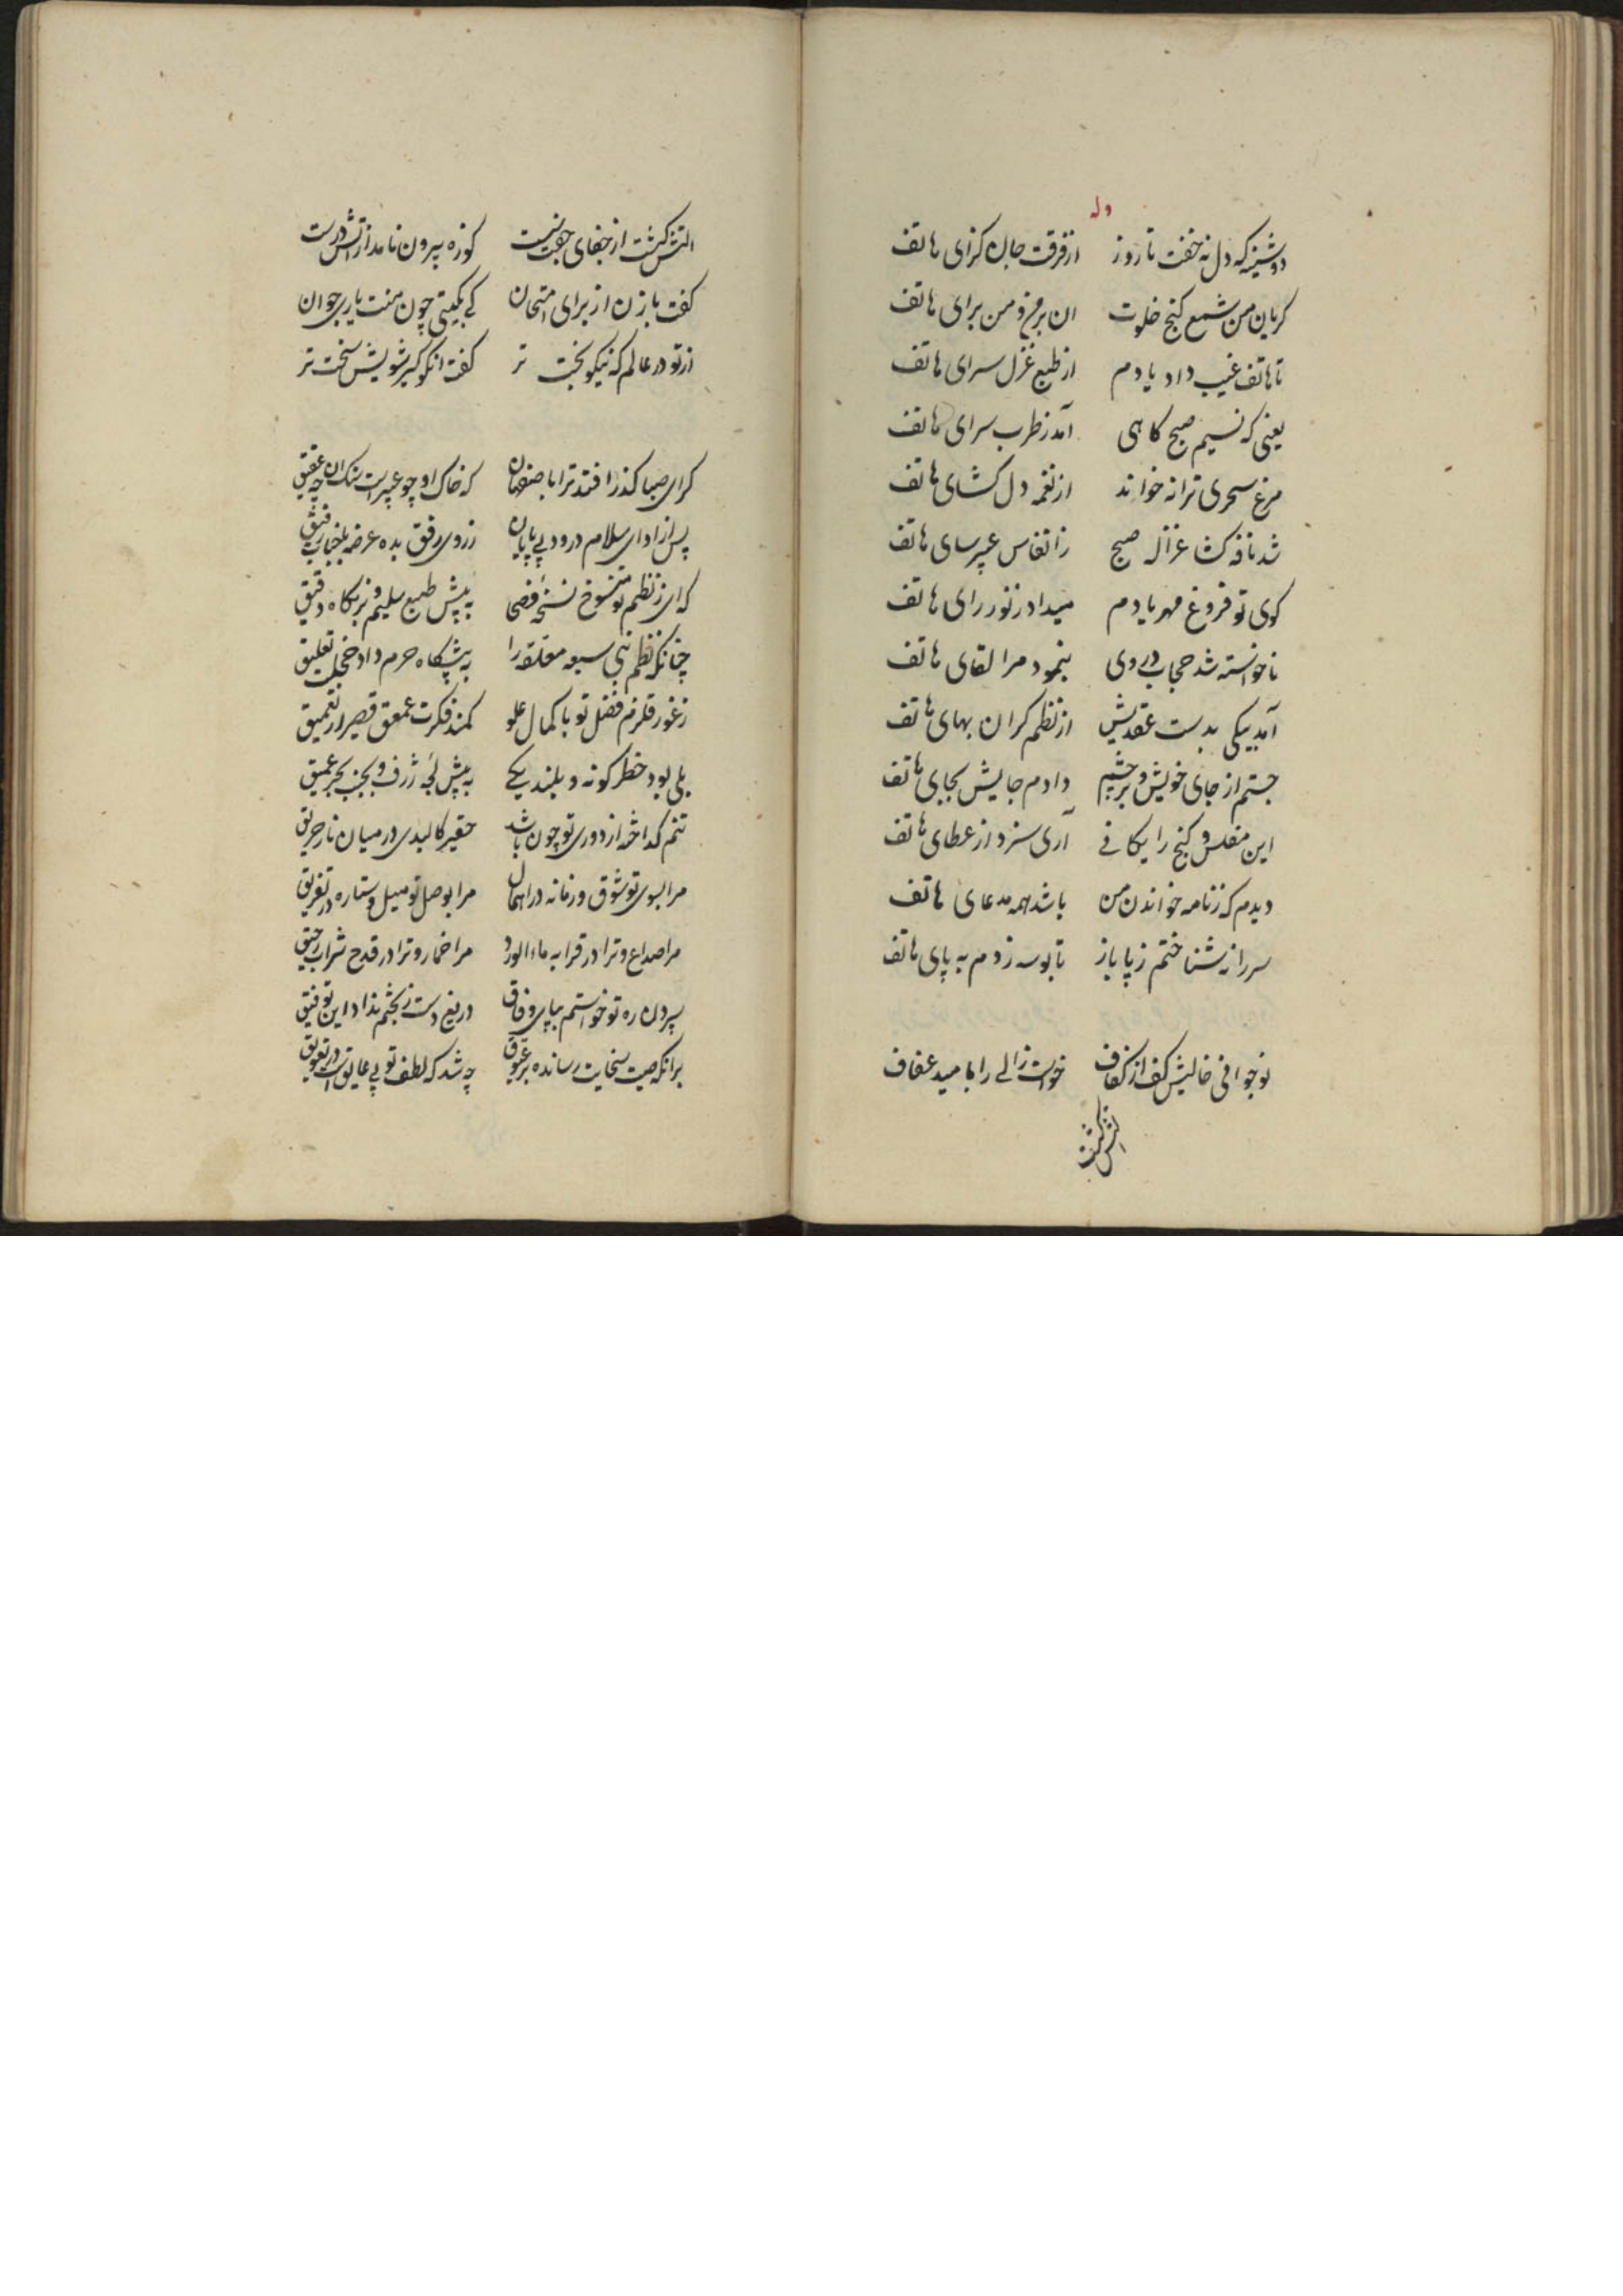 وله
دوشینه که دل نه خفت تا روز از فرقت جان گزای هاتف
گریان من شمع کنج خلوت ان بر من و من برای هاتف
تا هاتف غیب داد یادم از طبع غزل سرای هاتف
یعنی که نسیم صبح گاهی آمد ز طرب سرای هاتف
مرغ سحری ترانه خواند از نغمه دل کشای هاتف
شد نافه کشا غزاله صبح ز انفاس عبیر سای هاتف
کوی تو فروغ مهر یادم میداد ز نور رای هاتف
ناخواسته شد حجاب در وی بنمود مرا لقای هاتف
آمد پیکی بدست عقدیش از نظم گران بهای هاتف
جستم از جای خویش و بر چشم دادم جایش بجای هاتف
این مفلس و گنج رایگانی آری سزد از عطای هاتف
دیدم که ز نامه خواندن من باشد همه مدعای هاتف
سر را نه شناختم ز پا باز تا بوسه زدم به پای هاتف
نوجوانی خالیش کف از کفاف خواست زالی را با مید عفاف
التش نگشت
التش نگشت از جفای جفت نیست کوزه بیرون نامد از آتش درست
گفت با زن از برای امتحان کی بگیتی چون منت یاری جوان
از تو در عالم که نیکو بخت تر گفت انکو کیر شویش سخت تر
گر ای صبا گذر افتد ترا باصفهان که خاک او چو عبیر است سنک ان چه عقیق
پس از ادای سلام درود بی پایان ز روی رفق بده عرضه بلخباب رفیق
که ای ز نظم تو منسوخ نسخهٔ فصحا به پیش طبع سلیم و بر نگاه دقیق
چنانکه نظم نبی سبعه معلقه را به پیشگاه حرم داد خجلت تعلیق
ز غور قلزم فضل تو با کمال علو کمند فکرت عمعق قصیر در تعمیق
بلی بود خطر کوته و بلند یکی به پیش لجه ژرف و بجنب بحر عمیق
تنم گداخته از دوری تو چون باشد حقیر کالبدی در میان نار حریق
مرا بسوی تو شوق و زمانه در اهمال مرا بوصل تو میل و ستاره در تفریق
مرا صداع و ترا در قرابه ماء الورد مرا خمار و ترا در قدح شراب رحیق
سپردن ره تو خواستم بپای وفاق دریغ دست ز بختم نداد این توفیق
برانکه صیت سخایت رسانده بر عیوق چه شد که لطف تو بی عایق است در تعویق